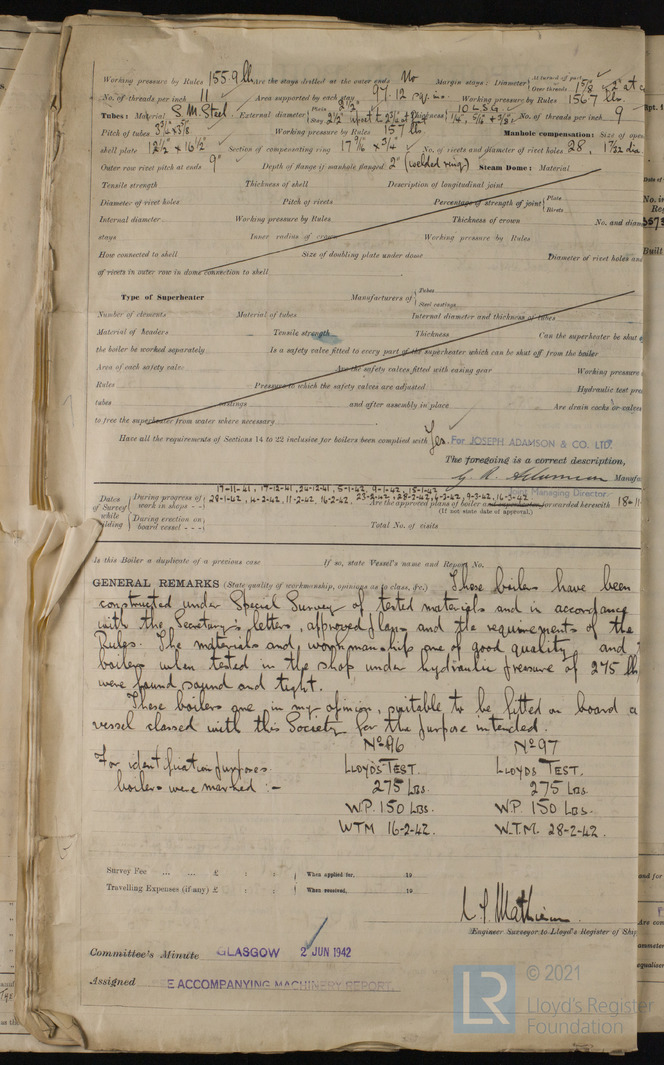 Working pressure by Rules 155.9 lb Are the stays drilled at the outer ends No Margin stays: Diameter { At turned off part, or Over threads 1 5/8
No. of threads per inch 11 Area supported by each stay 97.12 sq. in. Working pressure by Rules 156.7 lbs.
Tubes: Material S.M. Steel External diameter { Plain 2 1/2" Stay 2 1/2" Thickness { 10 L.S.G. 1/4", 5/16 & 3/8" No. of threads per inch 9
Pitch of tubes Working pressure by Rules 157 lbs Manhole compensation: Size of open
shell plate 12 1/2" x 16 1/2" Section of compensating ring No. of rivets and diameter of rivet holes 28, 1 7/32 dia
Outer row rivet pitch at ends 9" Depth of flange if manhole flanged 2" (welded ring) Steam Dome: Material
Tensile strength Thickness of shell Description of longitudinal joint
Diameter of rivet holes Pitch of rivets Percentage of strength of joint { Plate Rivets
Internal diameter Working pressure by Rules Thickness of crown No. and diam
stays Inner radius of crown Working pressure by Rules
How connected to shell Size of doubling plate under dome Diameter of rivet holes and
of rivets in outer row in dome connection to shell
Type of Superheater Manufacturers of { Tubes Steel castings
Number of elements Material of tubes Internal diameter and thickness of tubes
Material of headers Tensile strength Thickness Can the superheater be shut o
the boiler be worked separately Is a safety valve fitted to every part of the superheater which can be shut off from the boiler
Area of each safety valve Are the safety valves fitted with easing gear Working pressure
Rules Pressure to which the safety valves are adjusted Hydraulic test pre
tubes castings and after assembly in place Are drain cocks or valves
to free the superheater from water where necessary
Have all the requirements of Sections 14 to 22 inclusive for boilers been complied with Yes. For JOSEPH ADAMSON & CO. LTD.
The foregoing is a correct description,
Manufa
Managing Director.
Dates of Survey while building { During progress of work in shops - - 17-11-41, 17-12-41, 24-12-41, 5-1-42, 9-1-42, 15-1-42
28-1-42, 4-2-42, 11-2-42, 16-2-42, 23-2-42, 28-2-42, 6-3-42, 9-3-42, 16-3-42
Are the approved plans of boiler and superheater forwarded herewith 18-11
(If not state date of approval.)
During erection on board vessel - - - Total No. of visits
Is this Boiler a duplicate of a previous case If so, state Vessel's name and Report No.
GENERAL REMARKS (State quality of workmanship, opinions as to class, &c.) These boilers have been
constructed under Special Survey of tested materials and in accordance
with the Secretary's letters, approved plans and the requirements of the
Rules. The materials and workmanship are of good quality and
boilers when tested in the shop under hydraulic pressure of 275 lb
were found sound and tight.
These boilers are, in my opinion, suitable to be fitted on board a
vessel classed with this Society for the purpose intended.
For identification purposes
boilers were marked :-
No 96
LLOYDS TEST.
275 LBS.
W.P. 150 LBS.
WTM 16-2-42.
No 97
LLOYDS TEST.
275 LBS.
WP. 150 LBS.
W.T.M. 28-2-42.
Survey Fee ... ... £ : : When applied for, 19
Travelling Expenses (if any) £ : : When received, 19
Engineer Surveyor to Lloyd's Register of Ship
Committee's Minute GLASGOW 2 JUN 1942
Assigned EE ACCOMPANYING MACHINERY REPORT.
LR © 2021
Lloyd's Register
Foundation